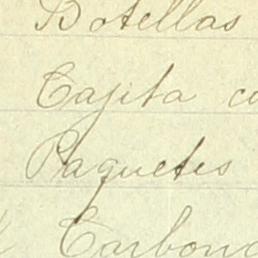 Botellas
Cajita
Paquetes
Carbona